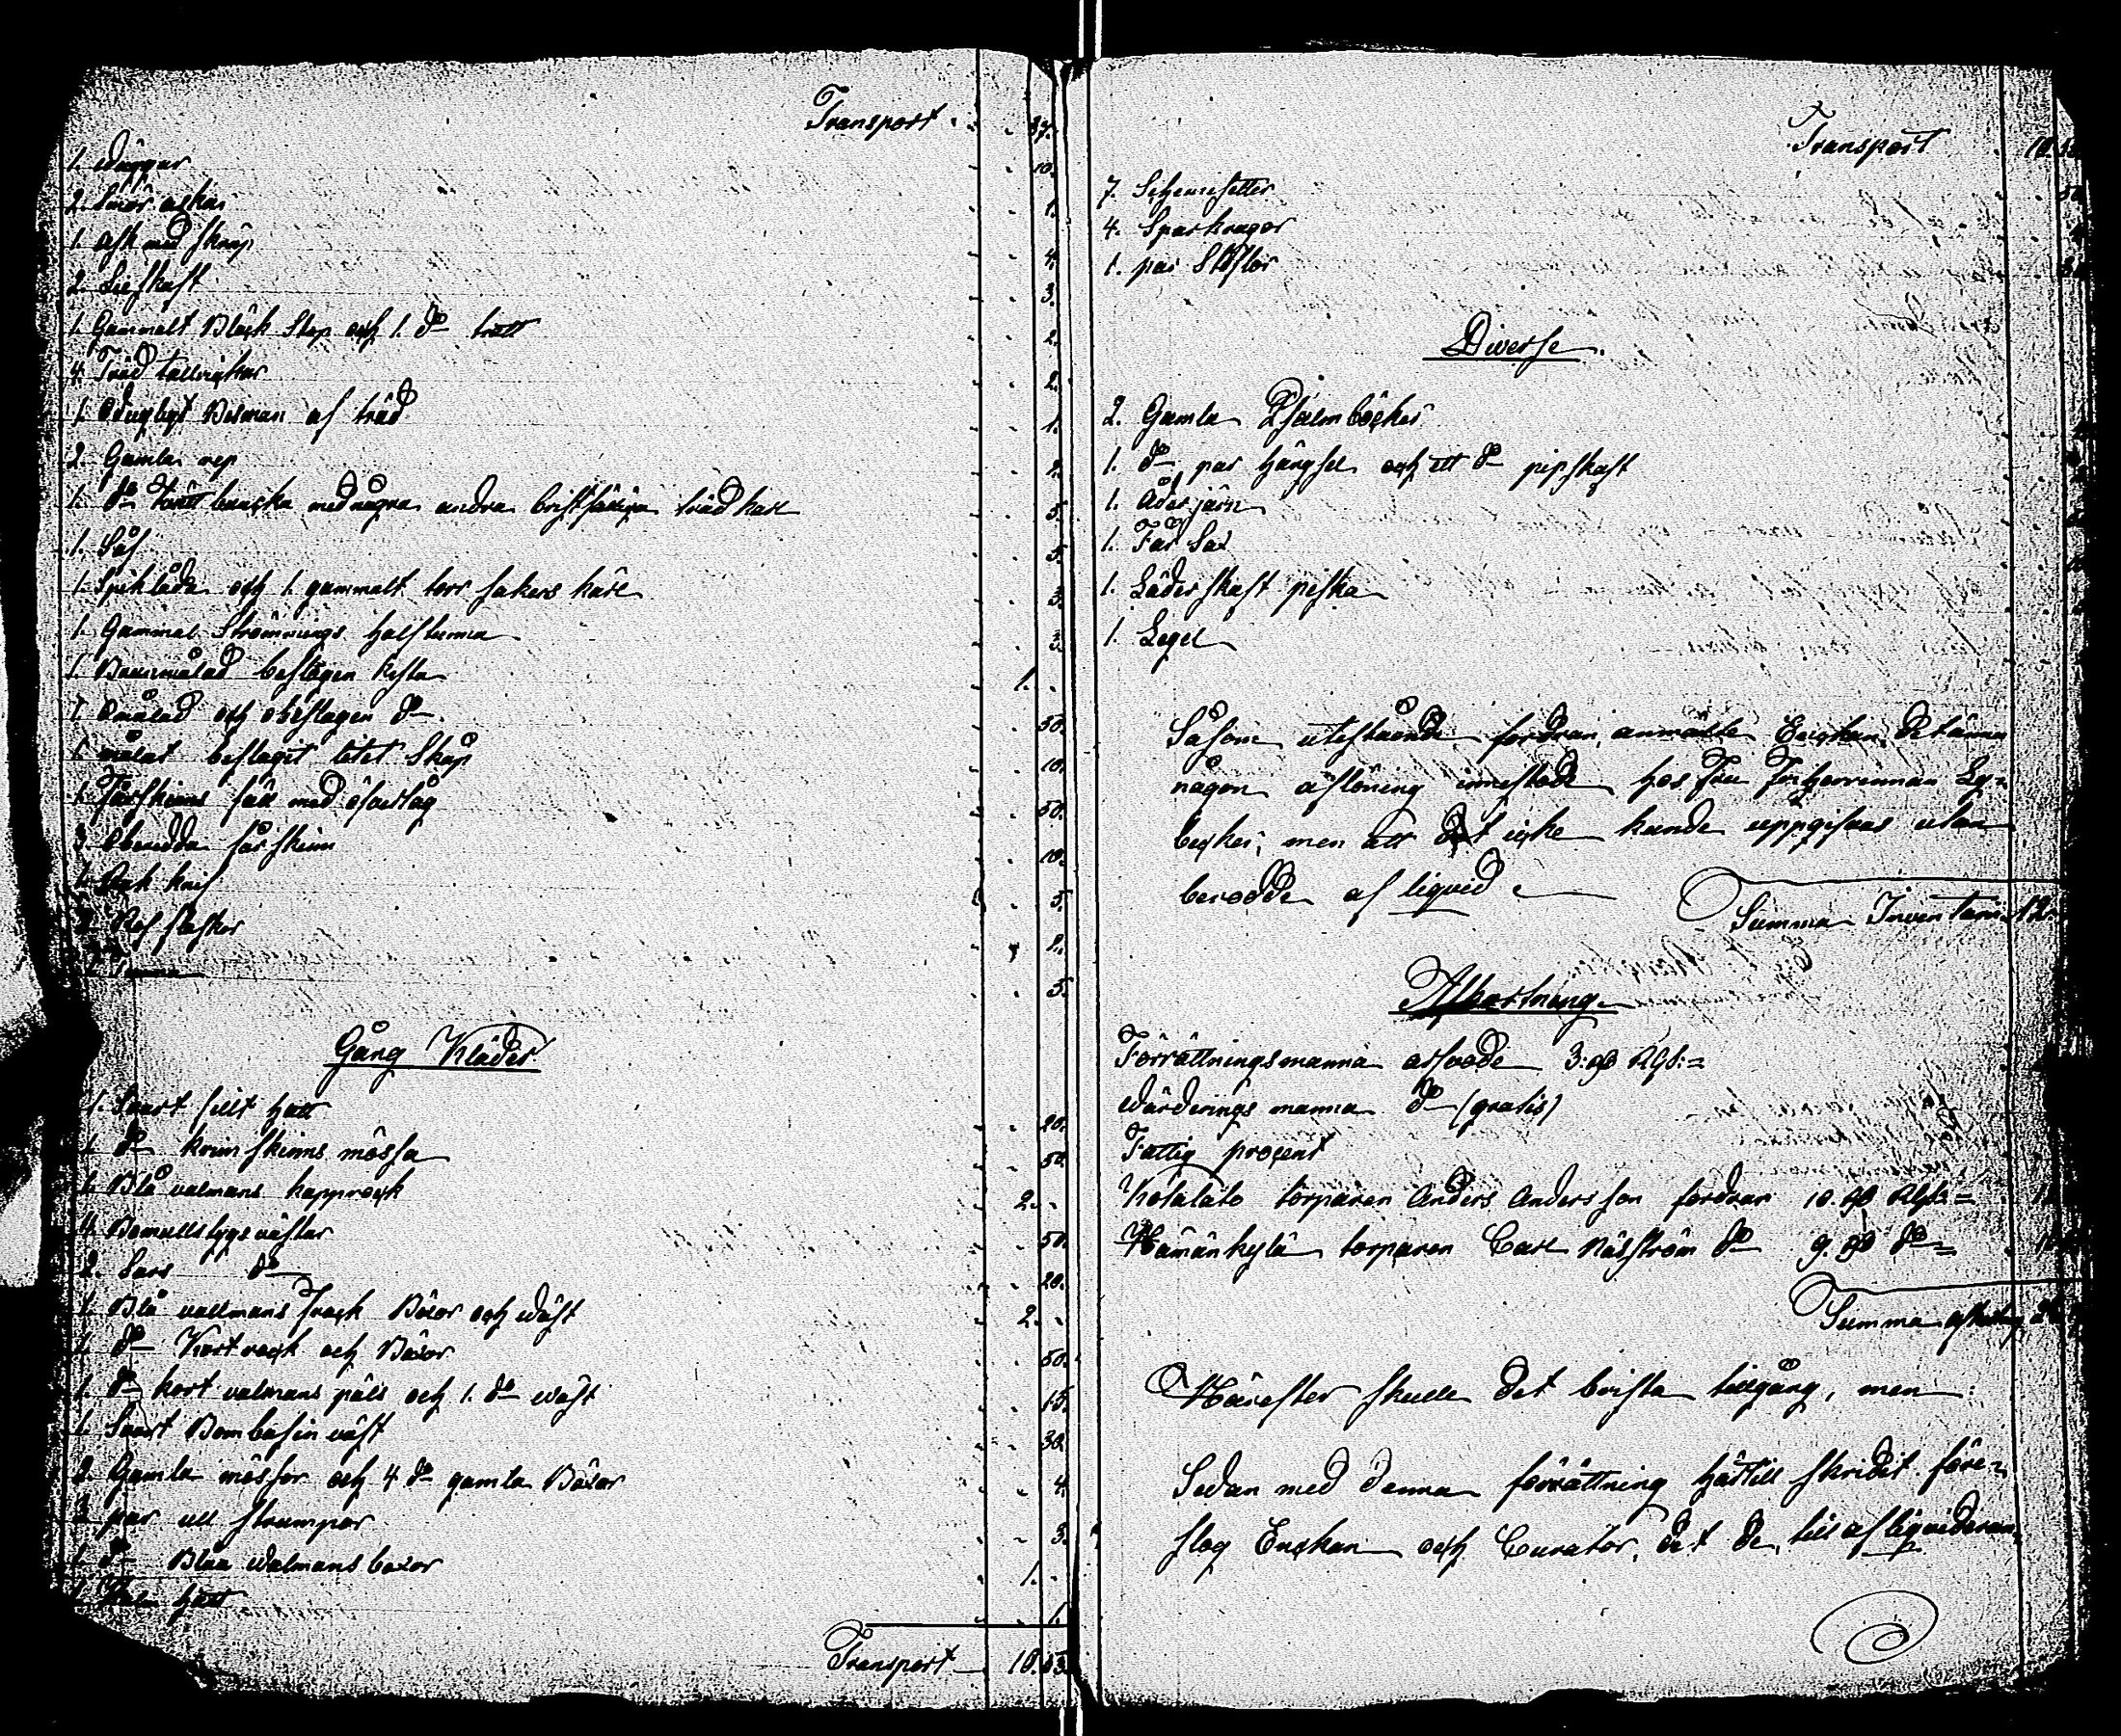 Transport . . 37.
1. Waggar . . 10.
2. Smör askar . . 1.
1. Ask med skräp . . 4.
2. Lieskaft . . 3.
1. Gammalt Bläck Stop och 1. do tratt . . 2.
4. Träd tallrickar . . 2.
1. Odugligt Besman af träd . . 1.
2. Gamla rep . . 2.
1. do tvätt baucka med några andra bristfäliga trädkarl . . 5.
1. Såf . . 5.
1. Spiklåda och 1. gammalt torr sakers kärl . . 3.
1. Gammal Strömmings halftunna . . 3.
1. Brunmålad beslagen kista . 1. .
1. Omålad och obeslagen do . . 50.
1. målat beslaget litet Skåp . . 10.
1. Fårskinns fäll med öfverlag . . 50.
3. Oberedda fårskinn . . 10.
1. knif . . 5.
flaskor . . 2.
. . 5.
Gång Kläder
1. Svart filt hatt . . 20.
1. do krimskinns mössa . . 50.
1. Blå valmans kapprock . 2. .
4. Bomullstygs västar . . 50.
2. Sars do . . 20.
1. Blå vallmans frack Böxor och Wäst . 2. .
1. do Kortrock och Böxor . . 50.
1. do kort valmans päls och 1. do wäst . . 15.
1. Svart Bombasin wäst . . 30.
2. Gamla mössor och 4 do gamla Böxor . . 4.
3 par ull strumpor . . 3.
1. do Blåa Walmans boxor . 1. .
1. hatt . . 1.
Transport 10.53.
Transport . 10.
7. Schemisetter
4. Sparkragor
1. par Stöflor
Diverse.
2. Gamla Psalmböcker
1. do par hängsel och ett do pipskaft
1. Åderjärn
1. Får Sax
1. Läderskaft piska
1. Legel
Såsom utestående fordran, anmälte Enckan, det ännu
någon aflöning innestode hos Fru Friherrinnan Ly-
becker, men att det icke kunde uppgifvas utan
berodde af liqvid.
Summa Inventarii 12.
Afkortning.
Förrättningsmanna arfvode 3: Rbl:=
Wärderings manna do (gratis)
Fattig procent
Kotalato torparen Anders Andersson fordrar 10. Rbl:=
Hämänkylä torparen Carl Näsström do 9. do=
Summa afkortng 2
Härefter skulle det brista tillgång, men
Sedan med denna förrättning härtill skridit före-
slog Enckan och Curator, det de, till afliqvideran